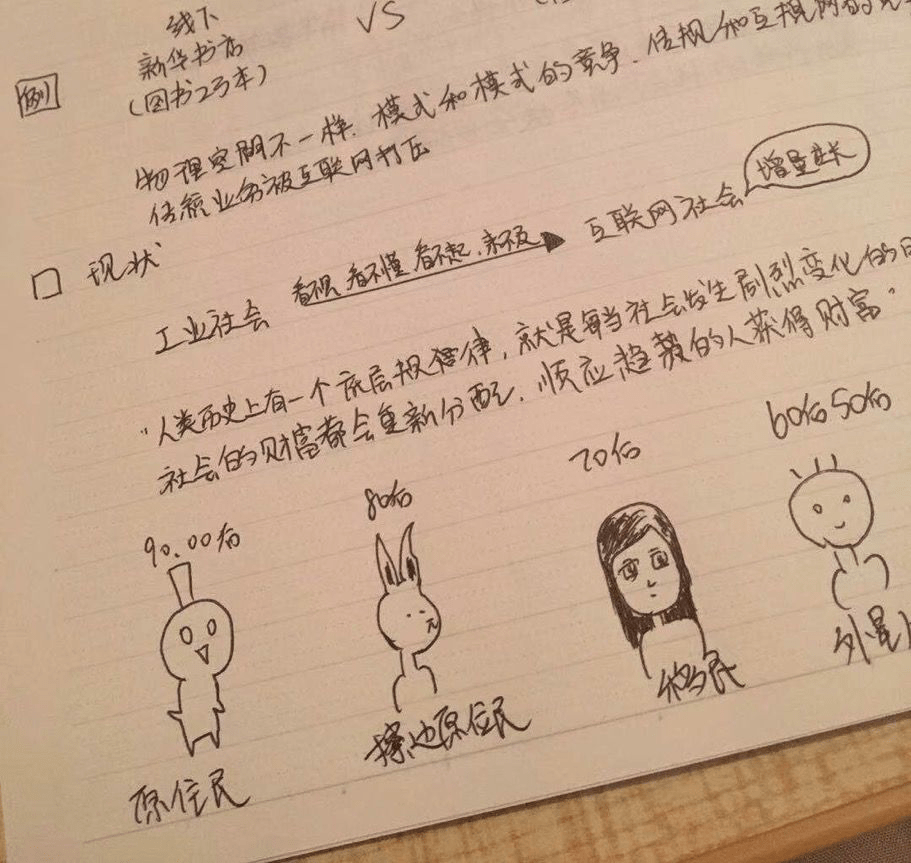 线下
VS
新华书店
例
(图书23本)
物理空间不一样. 模式和模式的竞争. 传规和互规网的
传统业务被互联网打压
口 现状
工业社会 看不见, 看不懂, 看不起, 来不及 互联网社会 增量变长
"人类历史上有一个底层规律律, 就是每当社会发生剧烈变化的
社会的财富都会重新分配, 顺应趋势的人获得财富"
90.00后 80后 70后 60后50后
原住民 擦边原住民 移民 外星